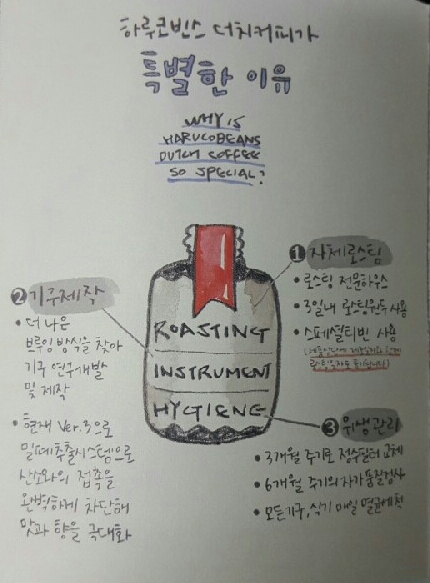 하루코빈스 더치커피가
특별한 이유
WHY IS
HARUCOBEANS
DUTCH COFFEE
SO SPECIAL?
❶ 자체로스팅
• 로스팅 전문하우스
• 3일내 로스팅원두 사용
• 스페셜티빈 사용
❷ 기구제작
• 더 나은
브루잉 방식을 찾아
기구 연구개발
및 제작
• 현재 Ver.3으로
밀폐추출시스템으로
산소와의 접촉을
완벽하게 차단해
맛과 향을 극대화
ROASTING
INSTRUMENT
HYGIENE
❸ 위생관리
• 3개월 주기로 정수필터 교체
• 6개월 주기의 자가품질검사
• 모든기구, 식기 매일 멸균세척